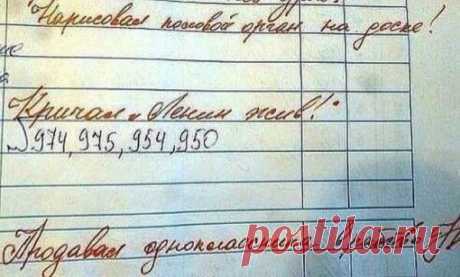 Нарисовал половой орган на доске!
Кричал „Ленин жив!"
974, 975, 954, 950
Продавал одноклассникам
postila.ru